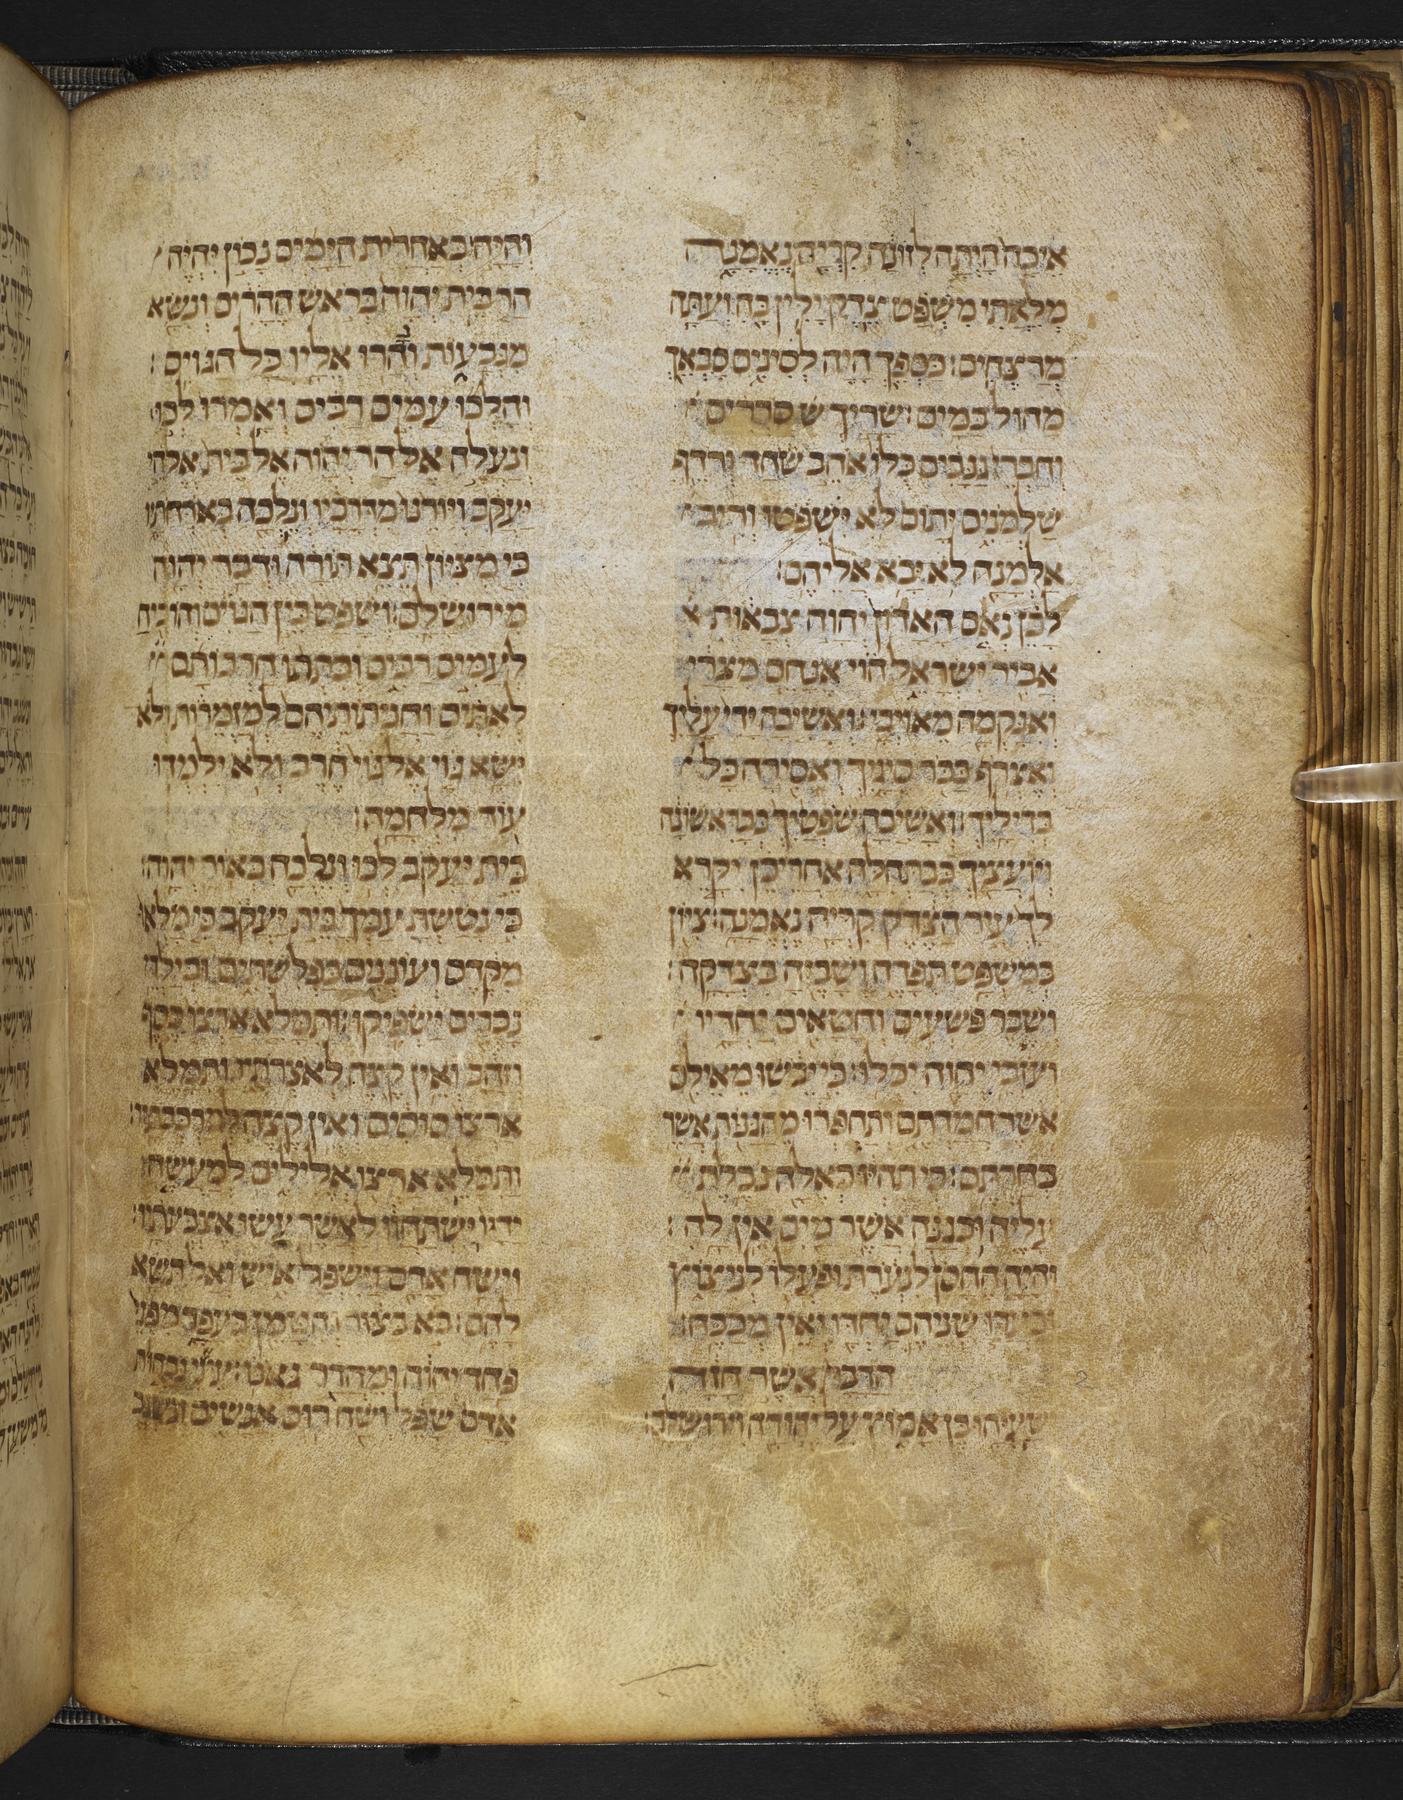 איכה היתה לזונה קריה נאמנה
מלאתי משפט צדק ילין בה ועתה
מרצחים: כספך היה לסיגים סבאך
מהול במים: שריך סררים
וחברי גנבים כלו אהב שחד ורדף
שלמנים יתום לא ישפטו וריב
אלמנה לא יבא אליהם:
לכן נאם האדון יהוה צבאות
אביר ישראל הוי אנחם מצרי
ואנקמה מאויבי: ואשיבה ידי עליך
ואצרף כבר סיגיך ואסירה כל
בדיליך: ואשיבה שפטיך כבראשונה
ויועציך כבתחלה אחרי כן יקרא
לך עיר הצדק קריה נאמנה: ציון
במשפט תפדה ושביה בצדקה:
ושבר פשעים וחטאים יחדיו
ועזבי יהוה יכלו: כי יבשו מאילם
אשר חמדתם ותחפרו מהגנות אשר
בחרתם: כי תהיו כאלה נבלת
עליה וכגנה אשר מים אין לה:
והיה החסן לנערת ופעלו לניצוץ
ובערו שניהם יחדו ואין מכבה:
הדבר אשר חזה
ישעיהו בן אמוץ על יהודה וירושלם:
והיה באחרית הימים נכון יהיה
הר בית יהוה בראש ההרים ונשא
מגבעות ונהרו אליו כל הגוים:
והלכו עמים רבים ואמרו לכו
ונעלה אל הר יהוה אל בית אלהי
יעקב ויורנו מדרכיו ונלכה בארחתיו
כי מציון תצא תורה ודבר יהוה
מירושלם: ושפט בין הגוים והוכיח
לעמים רבים וכתתו חרבותם
לאתים וחניתותיהם למזמרות ולא
ישא גוי אל גוי חרב ולא ילמדו
עוד מלחמה:
בית יעקב לכו ונלכה באור יהוה:
כי נטשת עמך בית יעקב כי מלאו
מקדם ועוננים כפלשתים ובילדי
נכרים ישפיקו: ותמלא ארצו כסף
וזהב ואין קצה לאצרתיו ותמלא
ארצו סוסים ואין קצה למרכבתיו:
ותמלא ארצו אלילים למעשה
ידיו ישתחוו לאשר עשו אצבעתיו:
וישח אדם וישפל איש ואל תשא
להם: בא בצור והטמן בעפר מפני
פחד יהוה ומהדר גאנו: עיני גבהות
אדם שפל ושח רום אנשים ונשגב